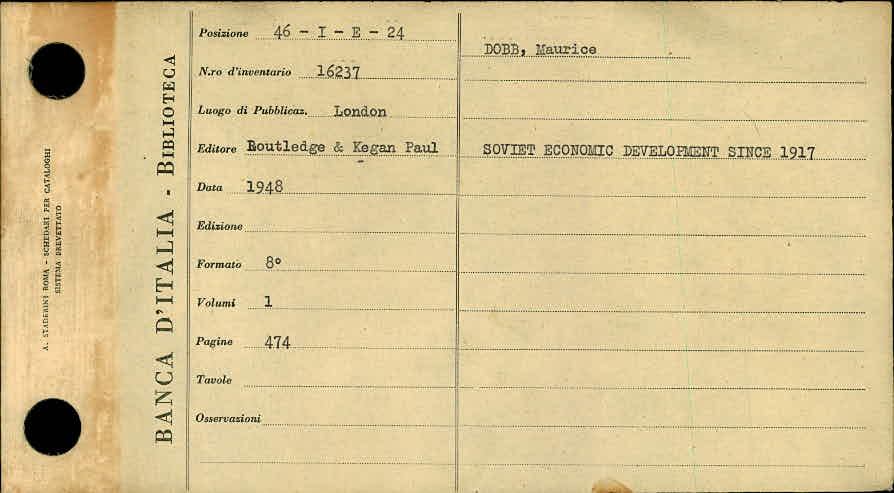 A. STADERINI ROMA - SCHEDARI PER CATALOGHI
SISTEMA BREVETTATO
BANCA D'ITALIA - BIBLIOTECA
Posizione 46 - I - E - 24
N.ro d'inventario 16237
Luogo di Pubblicaz. London
Editore Routledge & Kegan Paul
Data 1948
Edizione
Formato 8°
Volumi 1
Pagine 474
Tavole
Osservazioni
DOBB, Maurice
SOVIET ECONOMIC DEVELOPMENT SINCE 1917